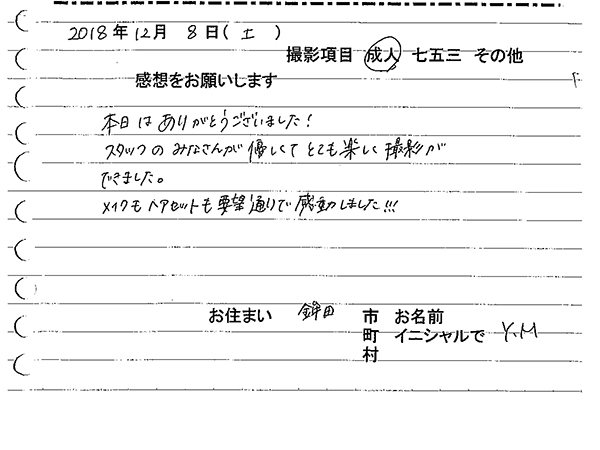 2018年12月8日(土)
撮影項目 成人 七五三 その他
感想をお願いします
本日はありがとうございました!
スタッフのみなさんが優しくてとても楽しく撮影が
できました。
メイクもヘアセットも要望通りで感動しました!!!
お住まい 鉾田 市 お名前
町 イニシャルで Y.M
村